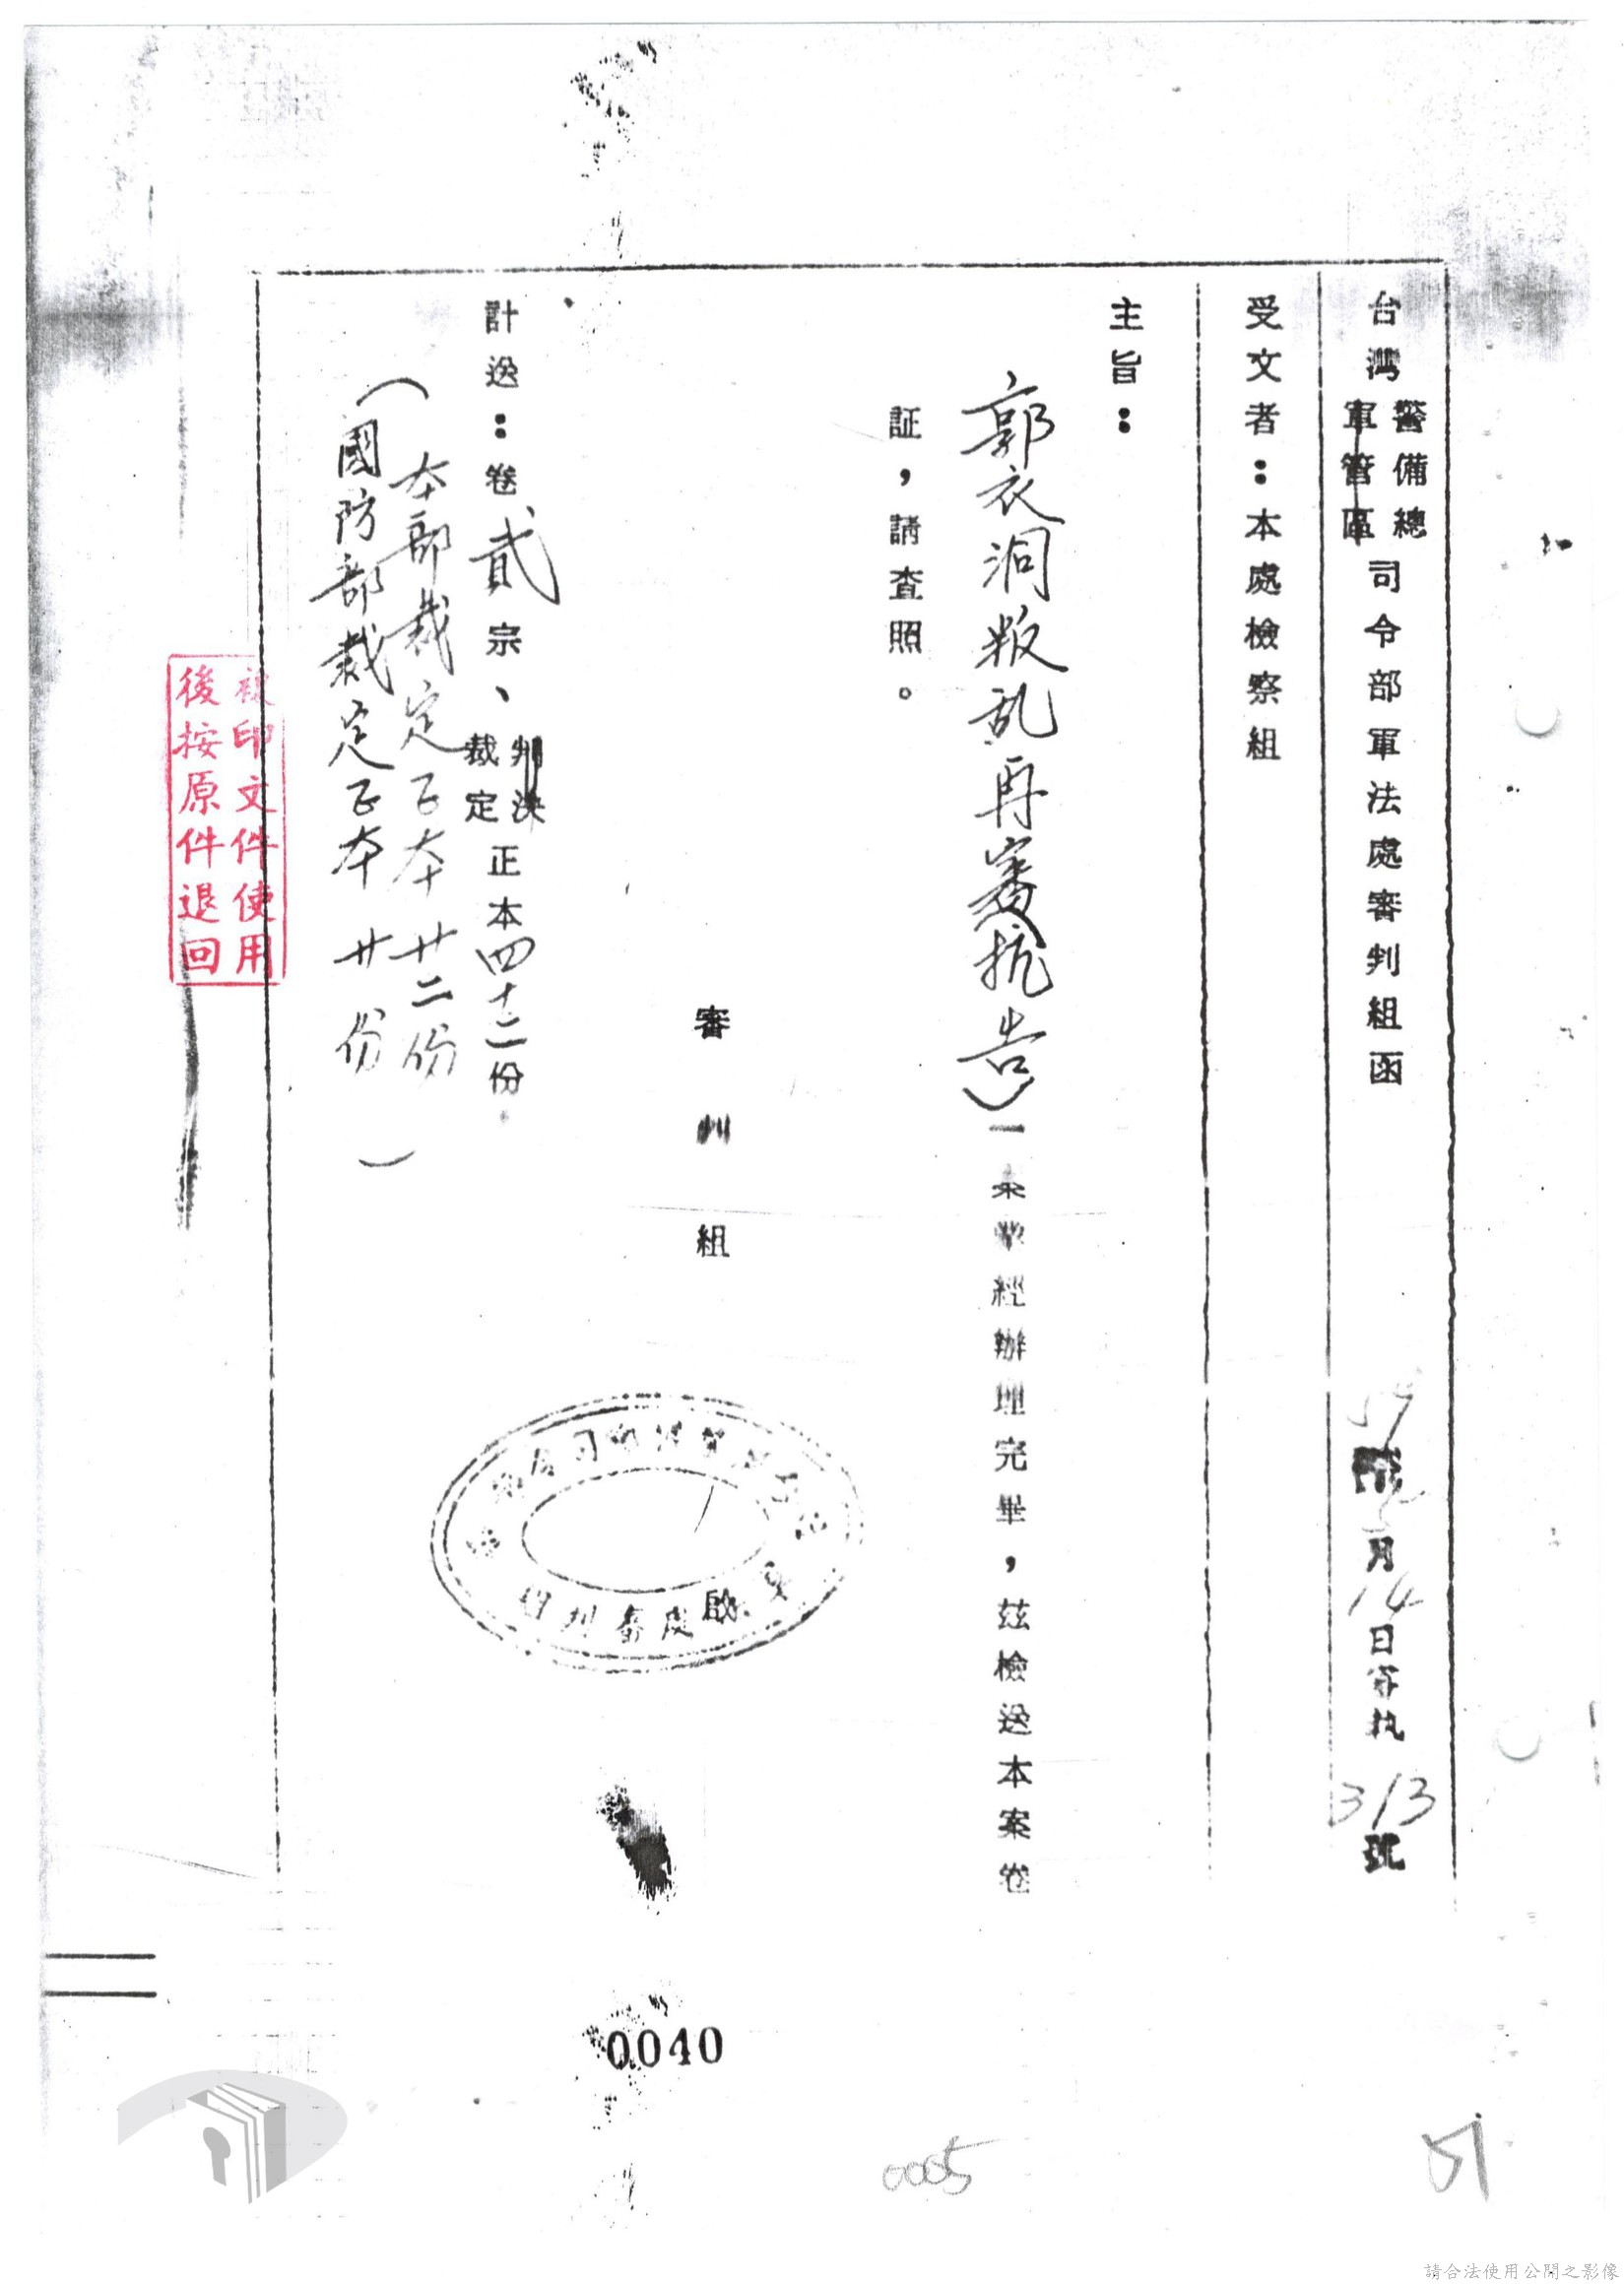 台灣警備總軍管區司令部軍法處審判組函 59 月14日 313號
受文者：本處檢察組
主旨：
郭衣洞叛乱再審（抗告）一案業經辦理完畢，茲檢送本案卷
証，請查照。
審判組 啟
計送：卷貳宗、判決裁定正本四十二份
（本部裁定正本廿二份
國防部裁定正本廿份）
複印文件使用
後按原件退回
0040
0005
51
請合法使用公開之影像